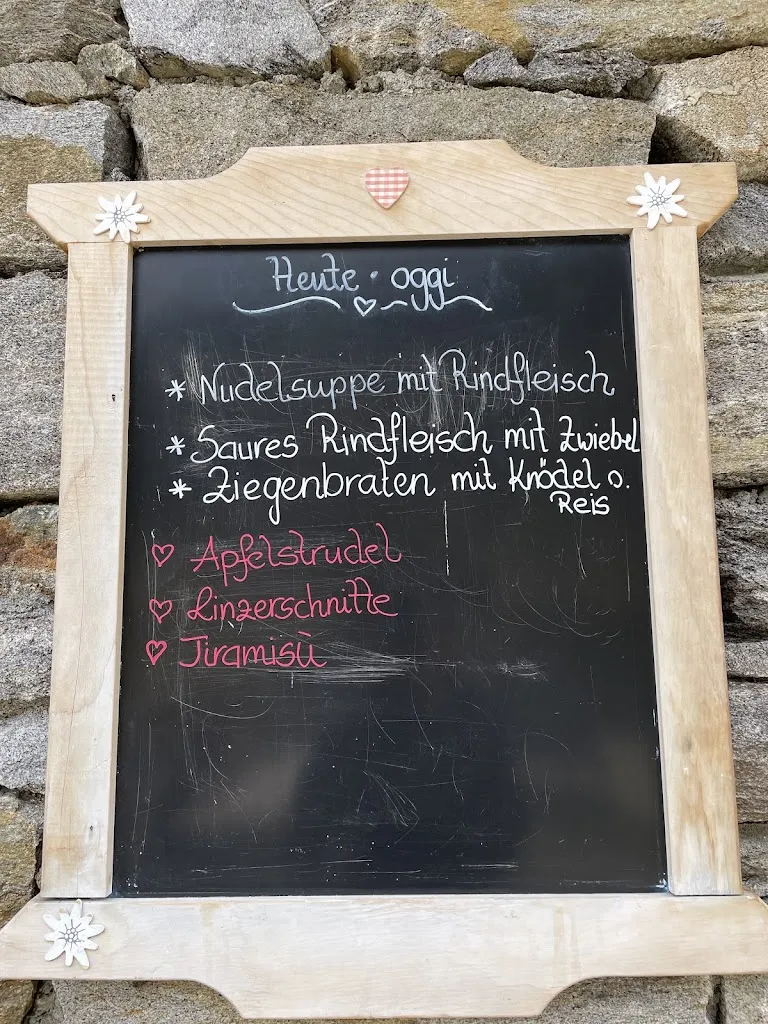 Heute · oggi
* Nudelsuppe mit Rindfleisch
* Saures Rindfleisch mit Zwiebel
* Ziegenbraten mit Knödel o.
Reis
♡ Apfelstrudel
♡ Linzerschnitte
♡ Tiramisù